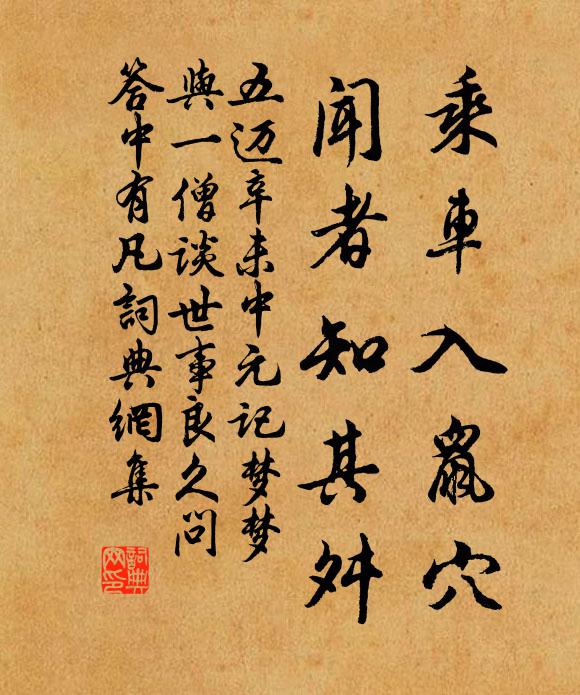 乘車入鼠穴
聞者知其舛
五迈辛未中元记梦梦
與一僧谈世事良久问
答中有凡詞典網集
詞典
网印